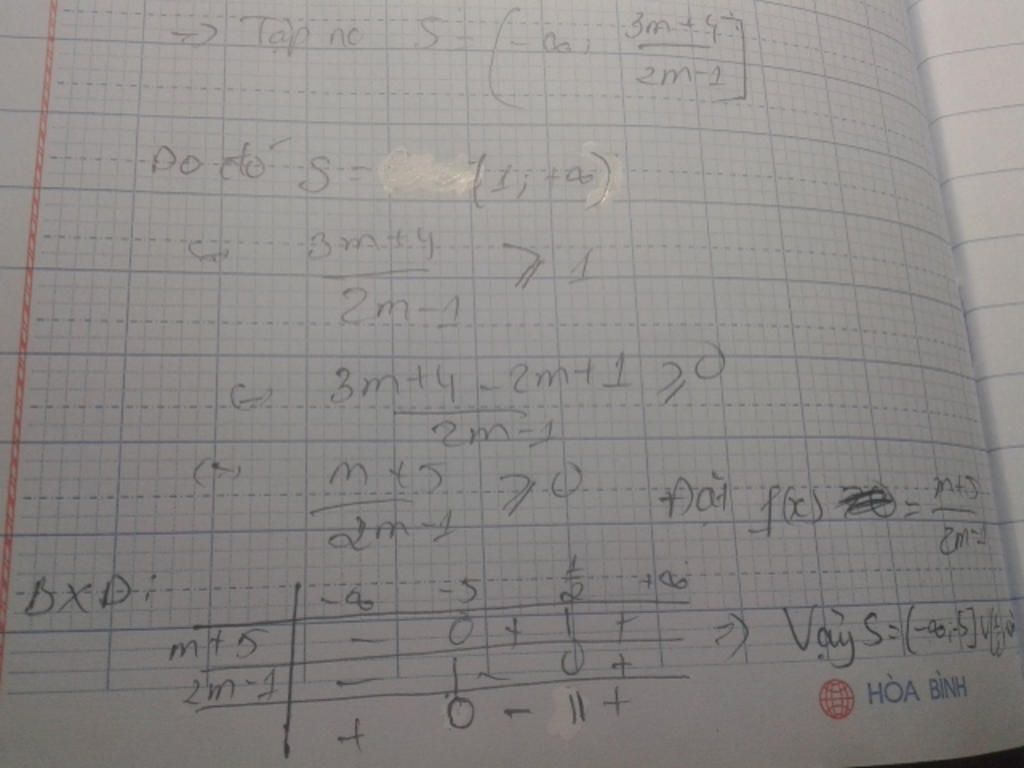 => Tập no S = (-∞; \frac{3m+4}{2m-1}]
Do đó S = (1; +∞)
<=> \frac{3m+4}{2m-1} ⩾ 1
<=> \frac{3m+4-2m+1}{2m-1} ⩾ 0
<=> \frac{m+5}{2m-1} ⩾ 0 Đặt f(x) = \frac{m+5}{2m-1}
BXD:
-∞ -5 \frac{1}{2} +∞
m+5 - 0 + | +
2m-1 - | - 0 +
+ 0 - || +
=> Vậy S = (-∞;-5] ∪
HÒA BÌNH